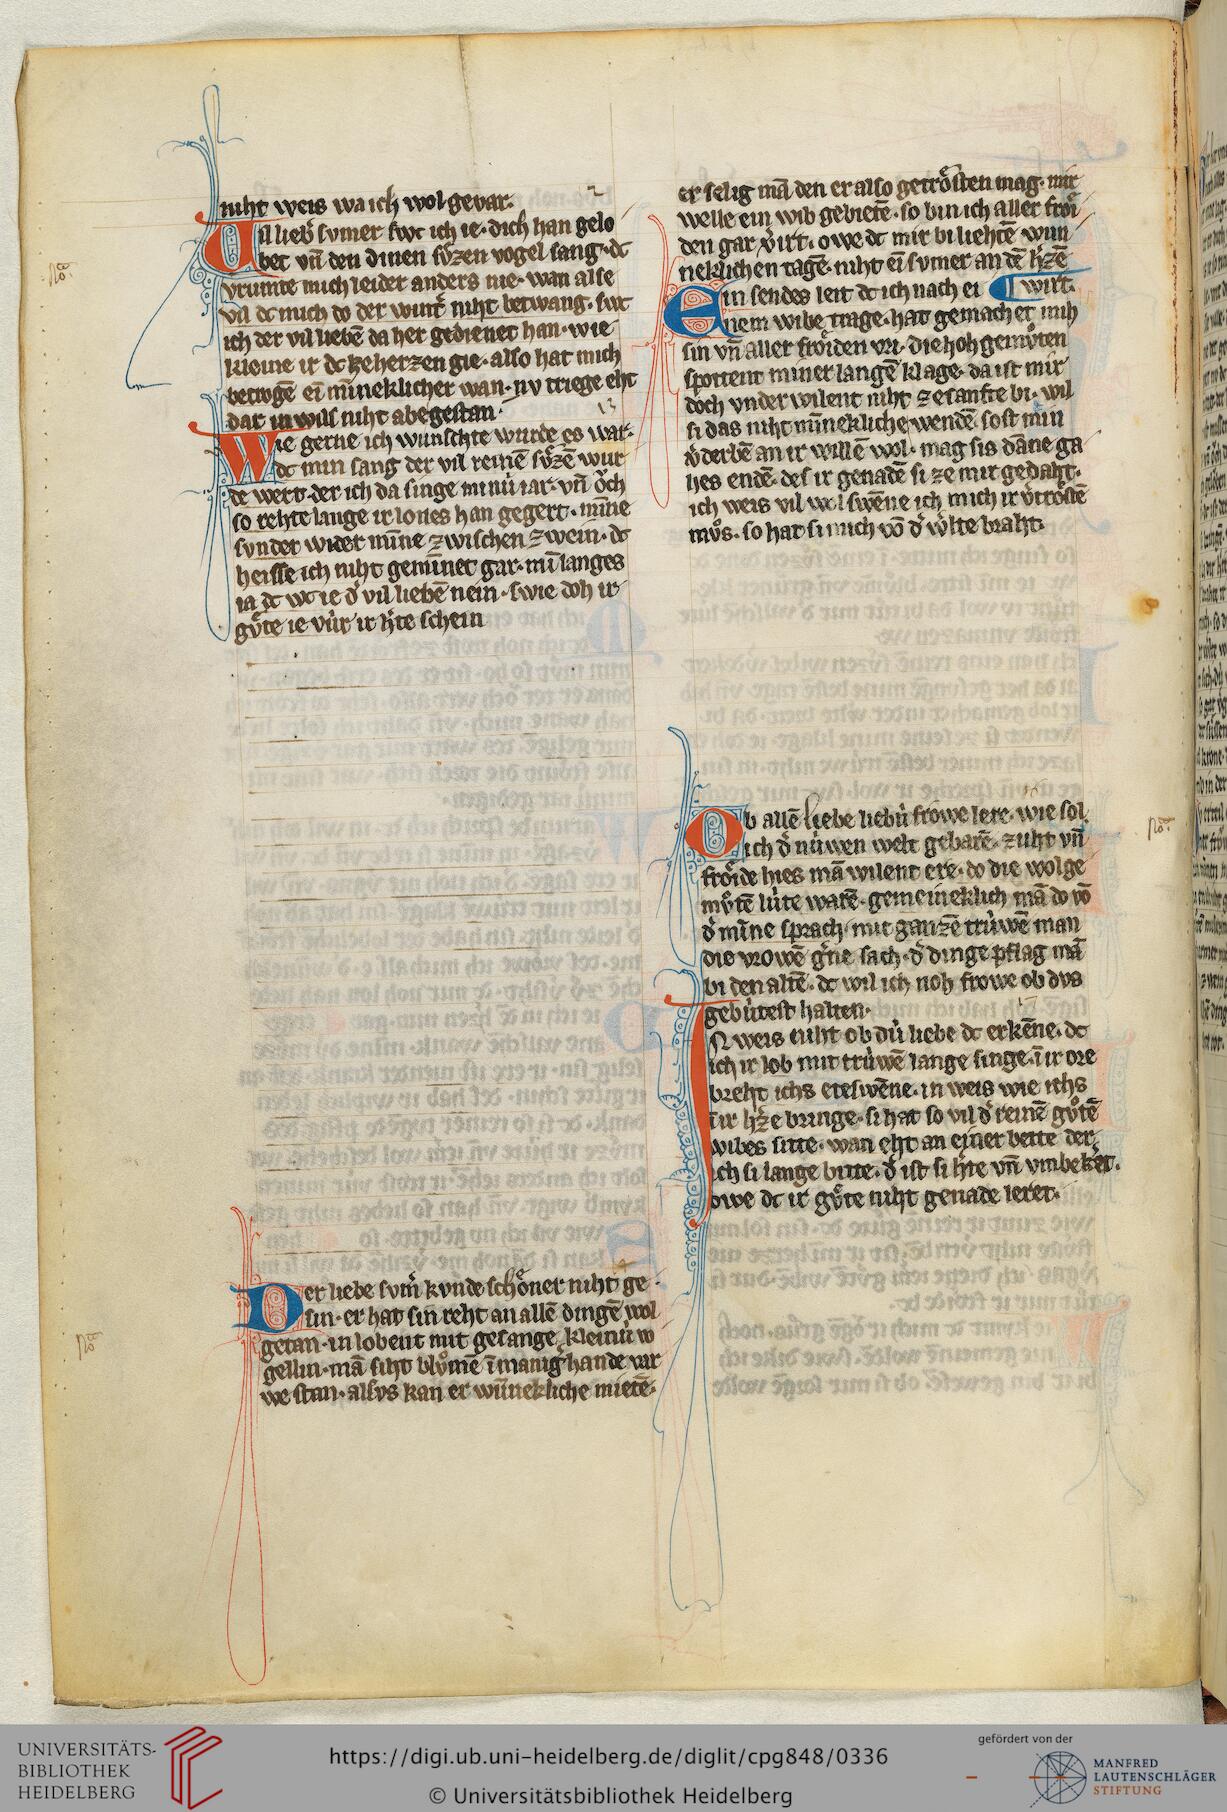 niht weis wa ich wol gevar.
Vil lieb̾ svmer swc ich ie. dich han gelo
bet vn̄ den dinen svͤzen vogel sang. dc
vrumte mich leider anders nie. wan alse
vil dc mich do der wint̾ niht betwang. swc
ich der vil liebē da her gedienet han. wie
kleine ir dc ze herzen gie. also hat mich
betrogē ei mīneklicher wan. nv triege eht
dar in wils niht abe gestan.
Wie gerne ich wunschte wurde es war.
dc min sang der vil reinē svͤzē wur
de wert. der ich da singe minú iar. vn̄ oͮch
so rehte lange ir lones han gegert. mīne
svnder wider mīne zwischen zwein. dc
heisse ich niht geminnet gar. mī langes
ia dc wc ie d̾ vil liebē nein. swie doh ir
gvͤte ie vúr ir h̾te schein
Der liebe svm̾ kvnde schoͤner niht ge
sin. er hat sin reht an allē dingē wol
getan. in lobent mit gesange kleinú vo
gellin. mā siht blvͦmē ī manig̾ hande var
we stan. alsvs kan er wūnekliche mietē.
er selig mā den er also getroͤsten mag. mir
welle ein wib gebietē. so bin ich aller froͤi
den gar v̾irt. owe dc mir bi liehtē wun
neklichen tagē. niht ei svmer an dē h̾zē
wirt.
Ein sendes leit dc ich nach ei
nem wibe trage. hat gemachet mih
sin vn̄ aller froͤiden vri. die hoh gemvͦten
spottent miner langē klage. da ist mir
doch vnder wilent niht ze sanfte bi. wil
si das niht mīnekliche wendē. sost min
v̾derbē an ir willē wol. mag sis dāne ga
hes endē. des ir genadē si ze mir gedaht.
ich weis vil wol swēne ich mich ir v̾troͤstē
mvͦs. so hat si mich vō d̾ w̾lte braht.
Ob allē liebe liebú frowe lere. wie sol
ich d̾ núwen welt gebarē. zuht vn̄
froͤide hies mā wilent ere. do die wolge
mvͦtē lúte warē. gemeineklich mā do vō
d̾ mīne sprach. mit ganzē trúwē man
die vrowē g̾ne sach. d̾ dinge pflag mā
bi den altē. dc wil ich noh frowe ob dvs
gebútest halten.
In weis niht ob dú liebe dc erkēne. dc
ich ir lob mit trúwē lange singe. ī ir ore
breht ichs eteswēne. in weis wie ichs
ī ir h̾ze bringe. si hat so vil d̾ reinē gvͦtē
wibes sitte. wan eht an einer bette der
ich si lange bitte. d̾ ist si h̾te vn̄ vmbeker̾t.
owe dc ir gvͤte niht genade leret.
UNIVERSITÄTS-
BIBLIOTHEK
HEIDELBERG
https://digi.ub.uni-heidelberg.de/diglit/cpg848/0336
© Universitätsbibliothek Heidelberg
gefördert von der
MANFRED
LAUTENSCHLÄGER
STIFTUNG